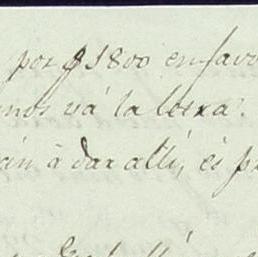 por $1800 en favo
mos vá la letra.
án à dar allí, és p